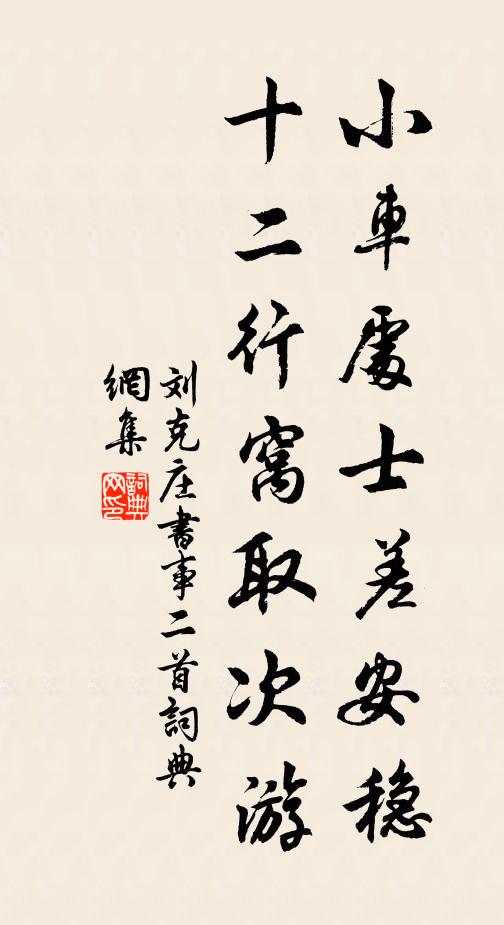 小車處士差安穩
十二行窩取次游
刘克庄書事二首詞典
網集
詞典网印